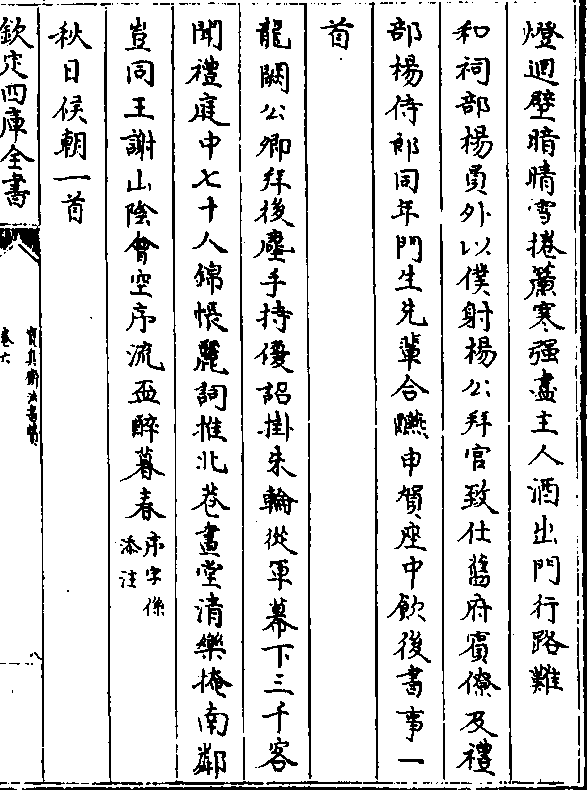 燈迴壁暗晴雪捲簾寒强盡主人酒出門行路難
和祠部楊員外以僕射楊公拜官致仕舊府賓僚及禮
部楊侍郎同年門生先輩合醼申賀座中飲後書事一
首
龍闕公卿拜後塵手持優詔掛朱輪從軍幕下三千客
聞禮庭中七十人錦帳麗詞推北巷畫堂清樂掩南鄰
豈同王謝山陰會空序流盃醉暮春序字係添注
秋日候朝一首
欽定四庫全書
寶真齋法書贊
卷六
八